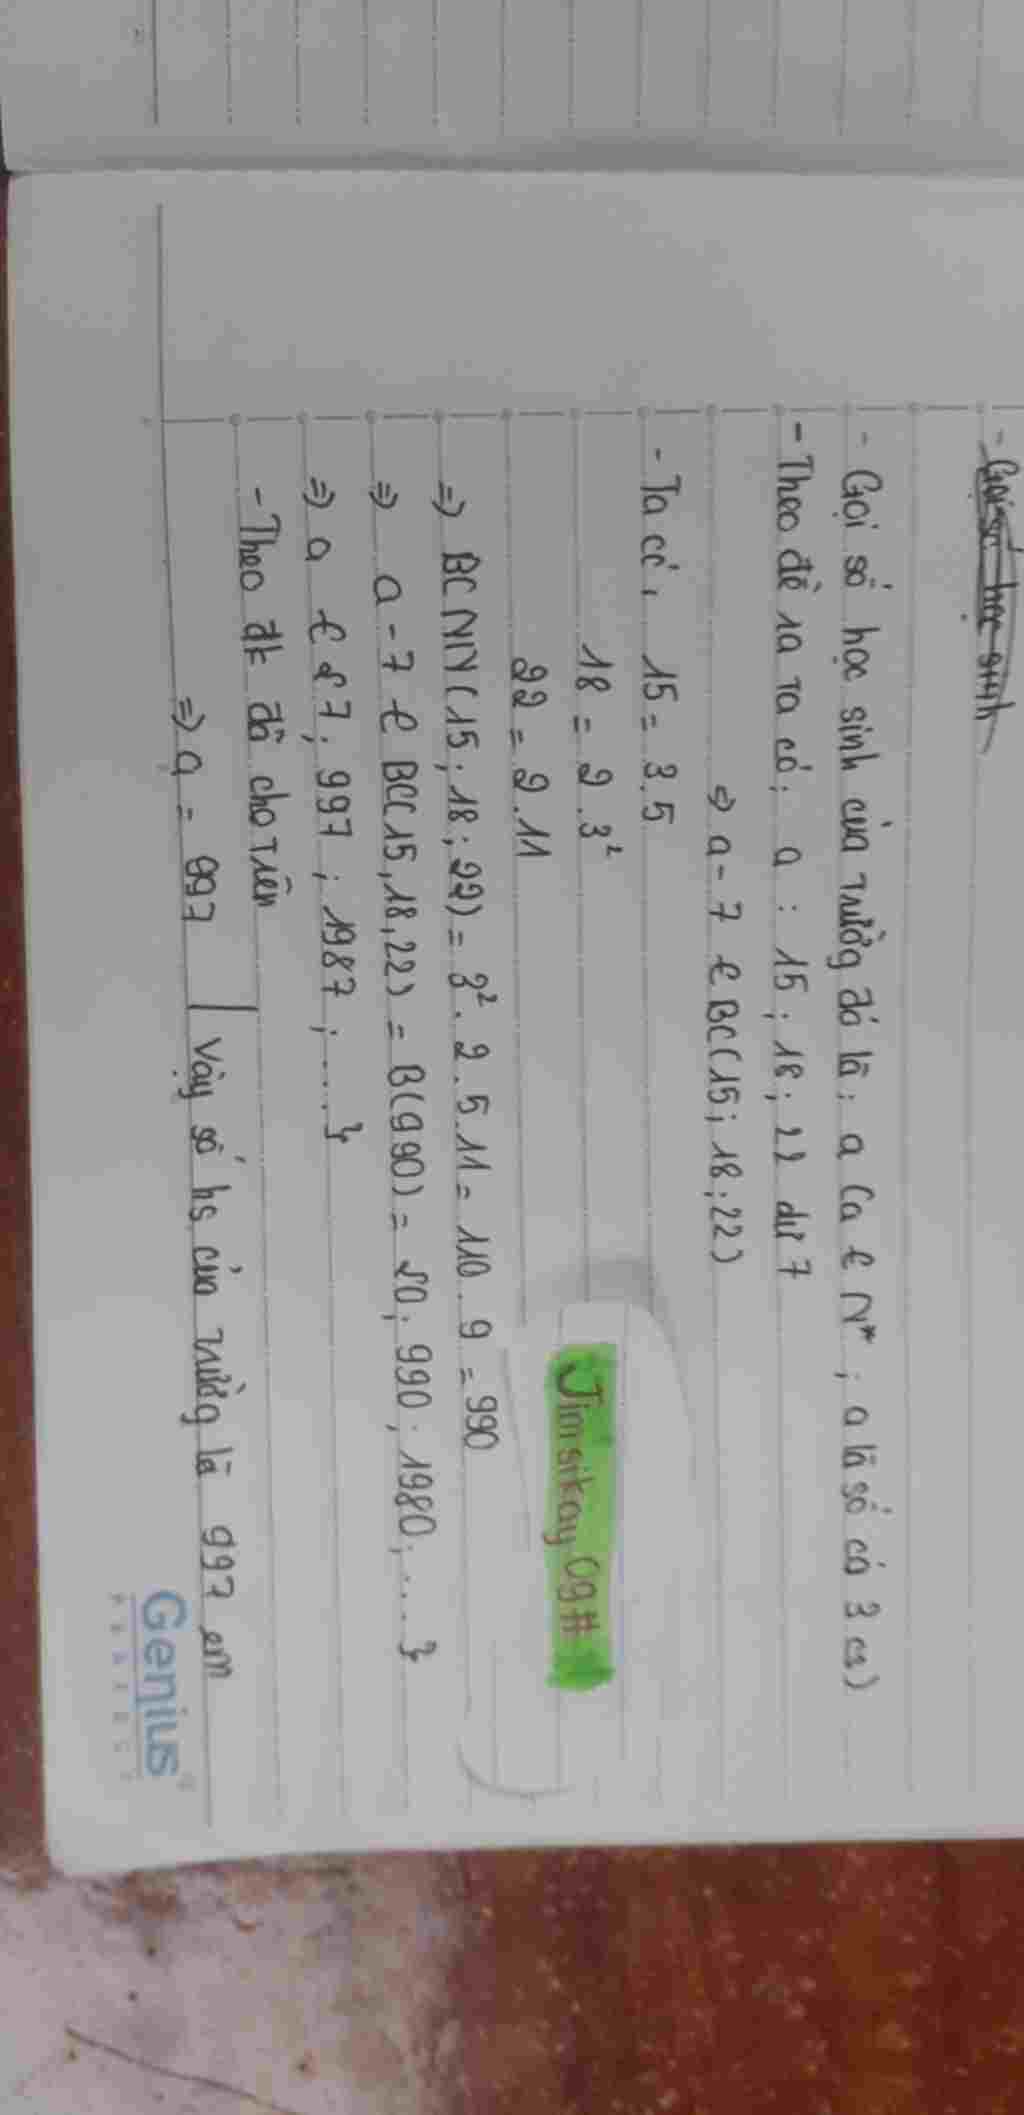 - Gọi số học sinh
- Gọi số học sinh của trường đó là; a (a € N*; a là số có 3 cs)
- Theo đề ra ta có; a : 15; 18; 22 dư 7
=> a - 7 € BC(15; 18; 22)
- Ta có, 15 = 3.5
18 = 2.3²
22 = 2.11
=> BCNN(15; 18; 22) = 3².2.5.11 = 110.9 = 990
=> a - 7 € BC(15,18,22) = B(990) = {0; 990; 1980;.....}
=> a € {7; 997; 1987;.....}
- Theo đk đã cho trên
=> a = 997 | Vậy số hs của trường là 997 em
Jimsikay09#
Genius